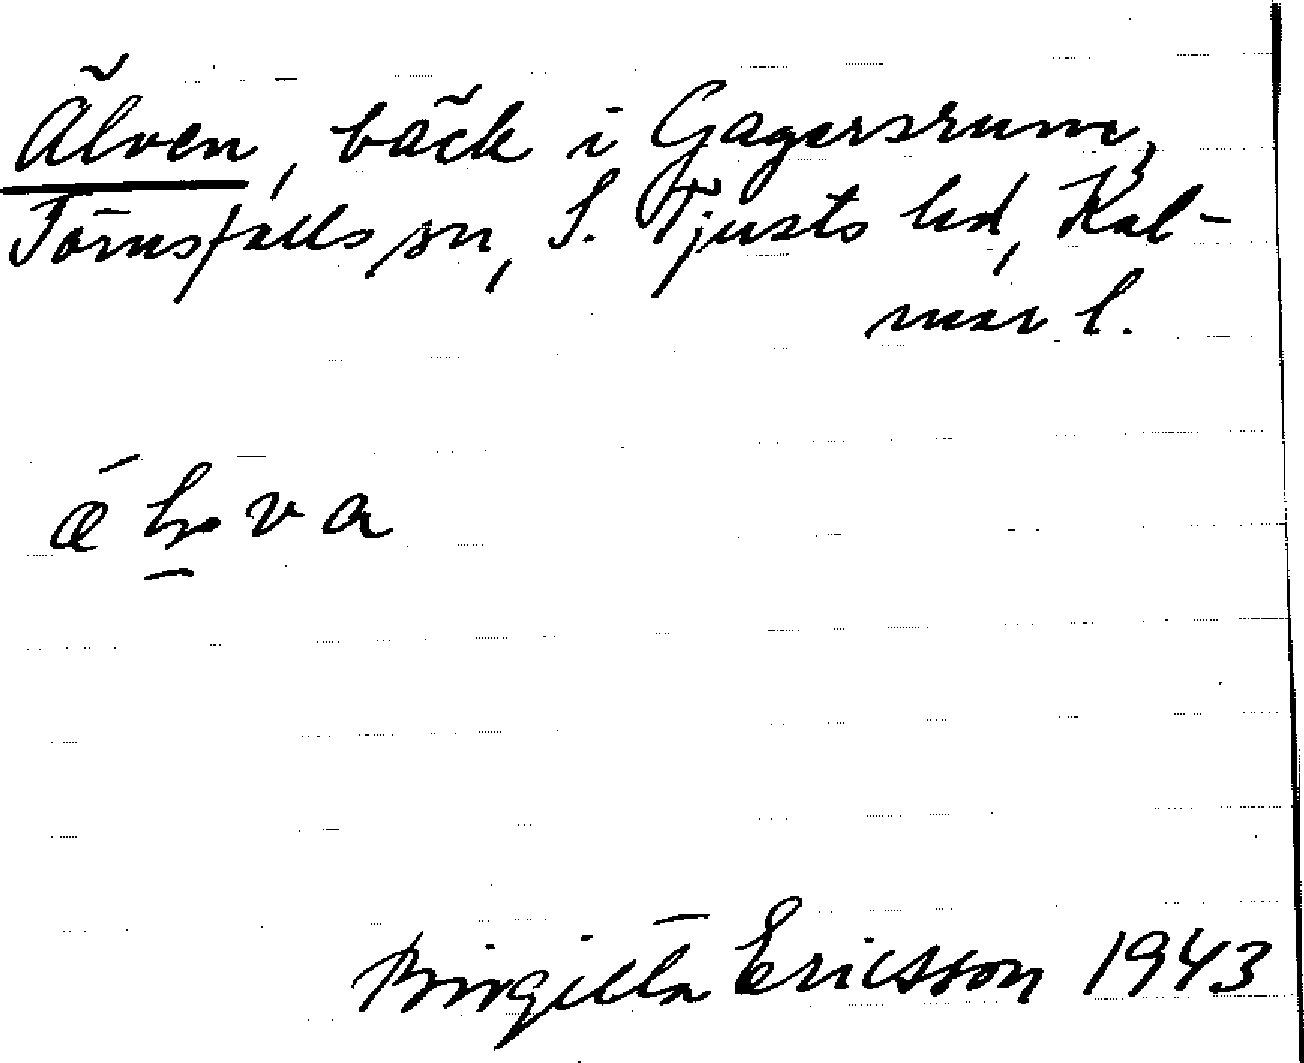 Älven, bäck i Gagersrum,
Törnsfalls sn, S. Tjusts hd, Kal-
mar l.
Birgitta Ericsson 1943